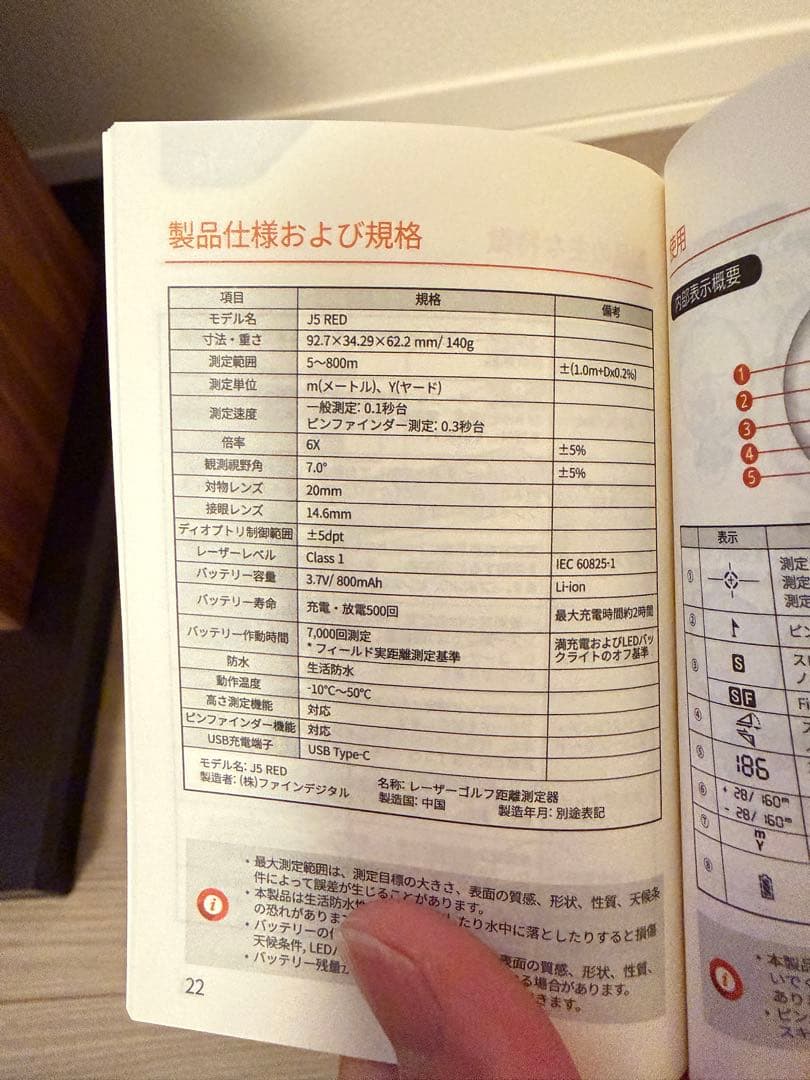 製品仕様および規格
項目 規格 備考
モデル名 J5 RED
寸法・重さ 92.7×34.29×62.2 mm/ 140g
測定範囲 5〜800m ±(1.0m+Dx0.2%)
測定単位 m(メートル)、Y(ヤード)
測定速度 一般測定: 0.1秒台
ピンファインダー測定: 0.3秒台
倍率 6X ±5%
観測視野角 7.0° ±5%
対物レンズ 20mm
接眼レンズ 14.6mm
ディオプトリ制御範囲 ±5dpt
レーザーレベル Class 1 IEC 60825-1
バッテリー容量 3.7V/ 800mAh Li-ion
バッテリー寿命 充電・放電500回 最大充電時間約2時間
バッテリー作動時間 7,000回測定
* フィールド実距離測定基準
満充電およびLEDバッ
クライトのオフ基準
防水 生活防水
動作温度 -10℃〜50℃
高さ測定機能 対応
ピンファインダー機能 対応
USB充電端子 USB Type-C
モデル名: J5 RED 名称: レーザーゴルフ距離測定器
製造者: (株)ファインデジタル 製造国: 中国 製造年月: 別途表記
・最大測定範囲は、測定目標の大きさ、表面の質感、形状、性質、天候条
件によって誤差が生じることがあります。
・本製品は生活防水 したり水中に落としたりすると損傷
の恐れがありま
・バッテリーの 表面の質感、形状、性質、
天候条件, LED る場合があります。
・バッテリー残量 きます。
22
使用
内部表示概要
1
2
3
4
5
表示
① 測定
測定
測定
② ピン
③ S ス
ノ
SF Fi
④
⑤ 186
⑥ + 28/ 160m
- 28/ 160m
⑦ m
Y
⑧
・本製品
いで
あり
・ピン
スキ